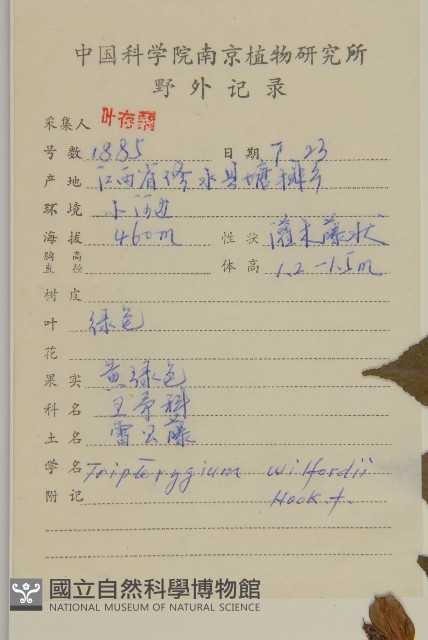 中国科学院南京植物研究所
野外记录
采集人 叶存粟
号数 1885 日期 7.23
产地 江西省修水县塘排乡
环境 小河边
海拔 460m 性状 灌木藤状
胸高直径 体高 1.2-1.5m
树皮
叶 绿色
花
果实 黄绿色
科名 卫矛科
土名 雷公藤
学名 Tripterygium wilfordii
附记 Hook f.
國立自然科學博物館
NATIONAL MUSEUM OF NATURAL SCIENCE